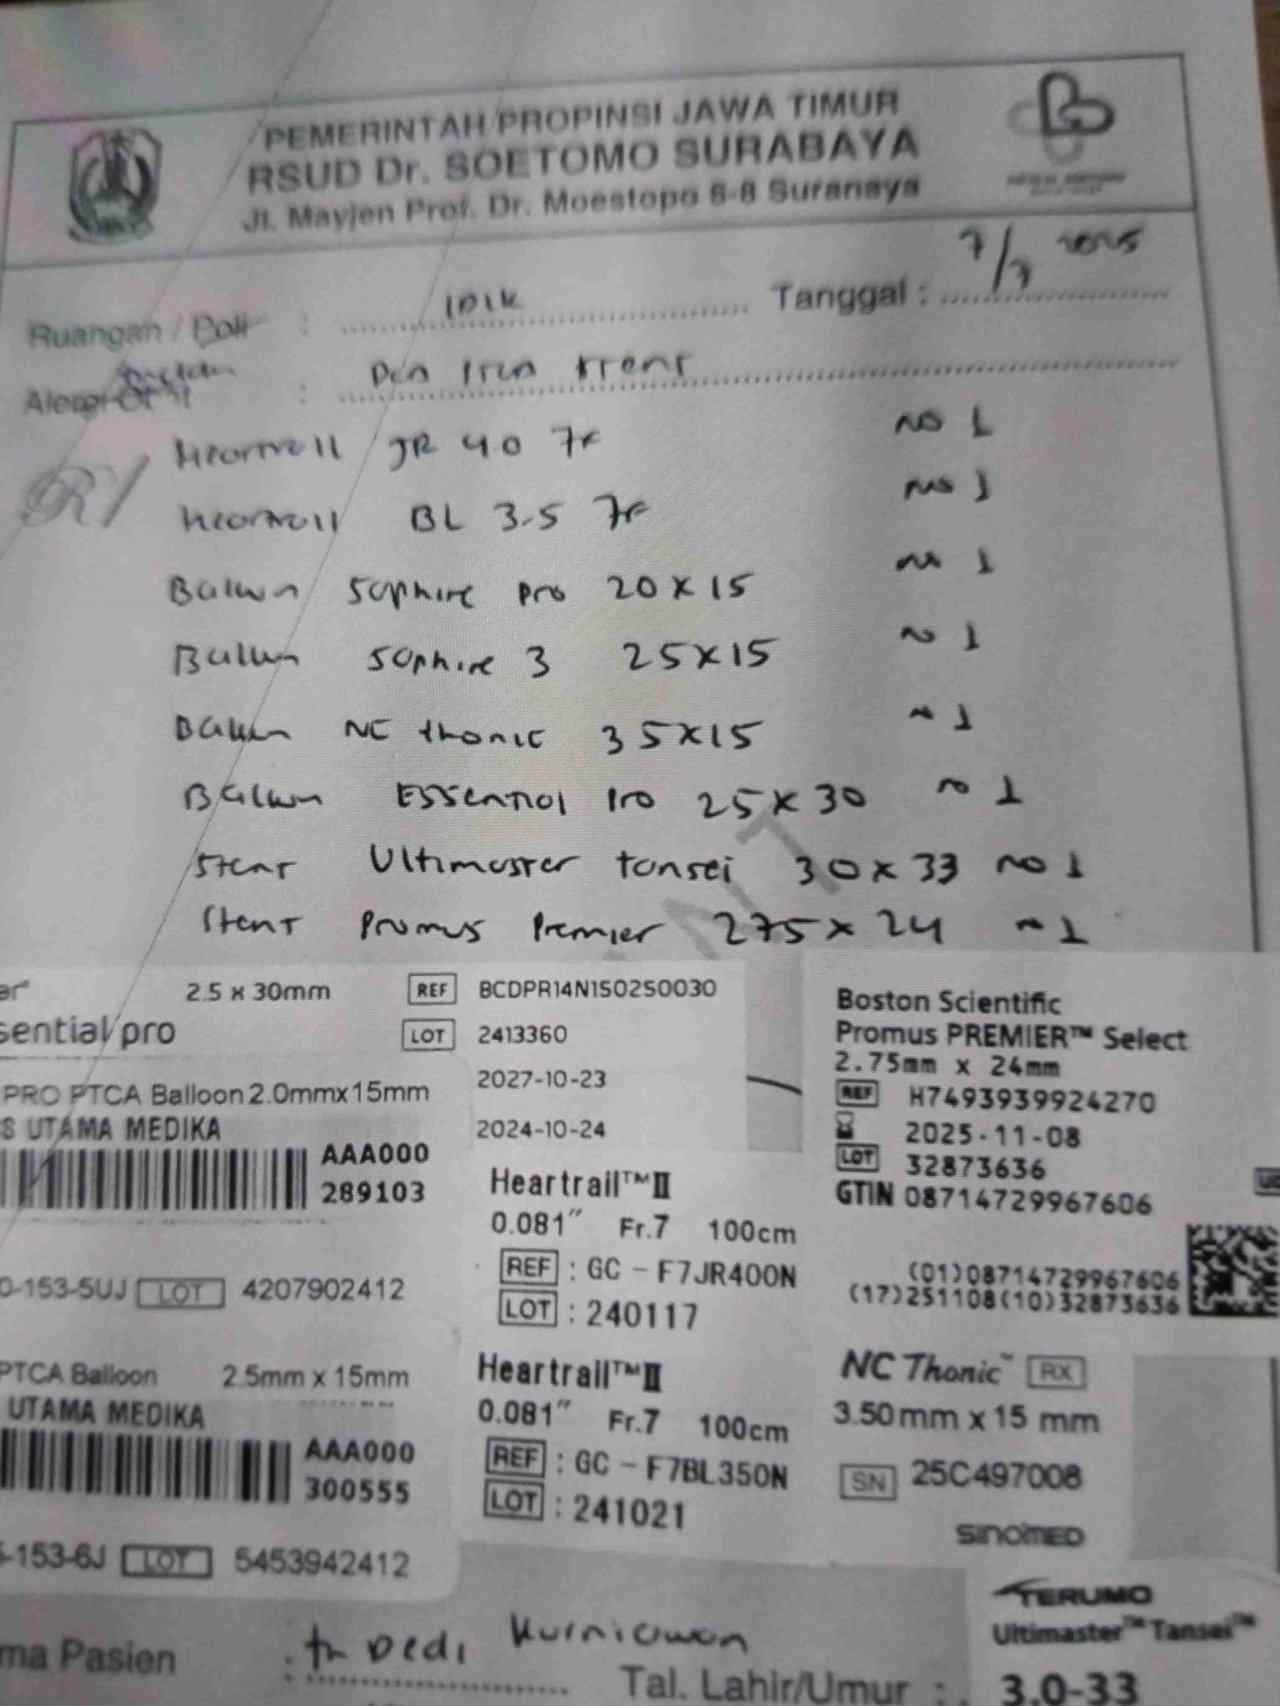 PEMERINTAH PROPINSI JAWA TIMUR
RSUD Dr. SOETOMO SURABAYA
Jl. Mayjen Prof. Dr. Moestopo 6-8 Suranaya
Ruangan / Poli : IDIK Tanggal : 7/7 2025
Heartrail JR 40 7F no 1
Heartrail BL 3.5 7F no 1
Balun Saphire pro 20 x 15 no 1
Balun Saphire 3 25x15 no 1
Balun NC thonic 35x15 no 1
Balun Essential Pro 25 x 30 no 1
Stent Ultimaster tansei 30 x 33 no 1
Stent Promus Premier 275 x 24 no 1
2.5 x 30mm REF BCDPR14N150250030
sential pro LOT 2413360
2027-10-23
2024-10-24
PRO PTCA Balloon 2.0mmx15mm
S UTAMA MEDIKA
AAA000
289103
0-153-5UJ LOT 4207902412
PTCA Balloon 2.5mm x 15mm
UTAMA MEDIKA
AAA000
300555
-153-6J LOT 5453942412
Heartrail™II
0.081" Fr.7 100cm
REF : GC - F7JR400N
LOT : 240117
Heartrail™II
0.081" Fr.7 100cm
REF : GC - F7BL350N
LOT : 241021
Boston Scientific
Promus PREMIER™ Select
2.75mm x 24mm
REF H7493939924270
2025-11-08
LOT 32873636
GTIN 08714729967606
(01)08714729967606
(17)251108(10)32873636
NC Thonic™ RX
3.50 mm x 15 mm
SN 25C497008
SINOMED
TERUMO
Ultimaster™ Tansei™
3.0-33
ma Pasien : tn Dedi Kurniawan
Tal. Lahir/Umur :